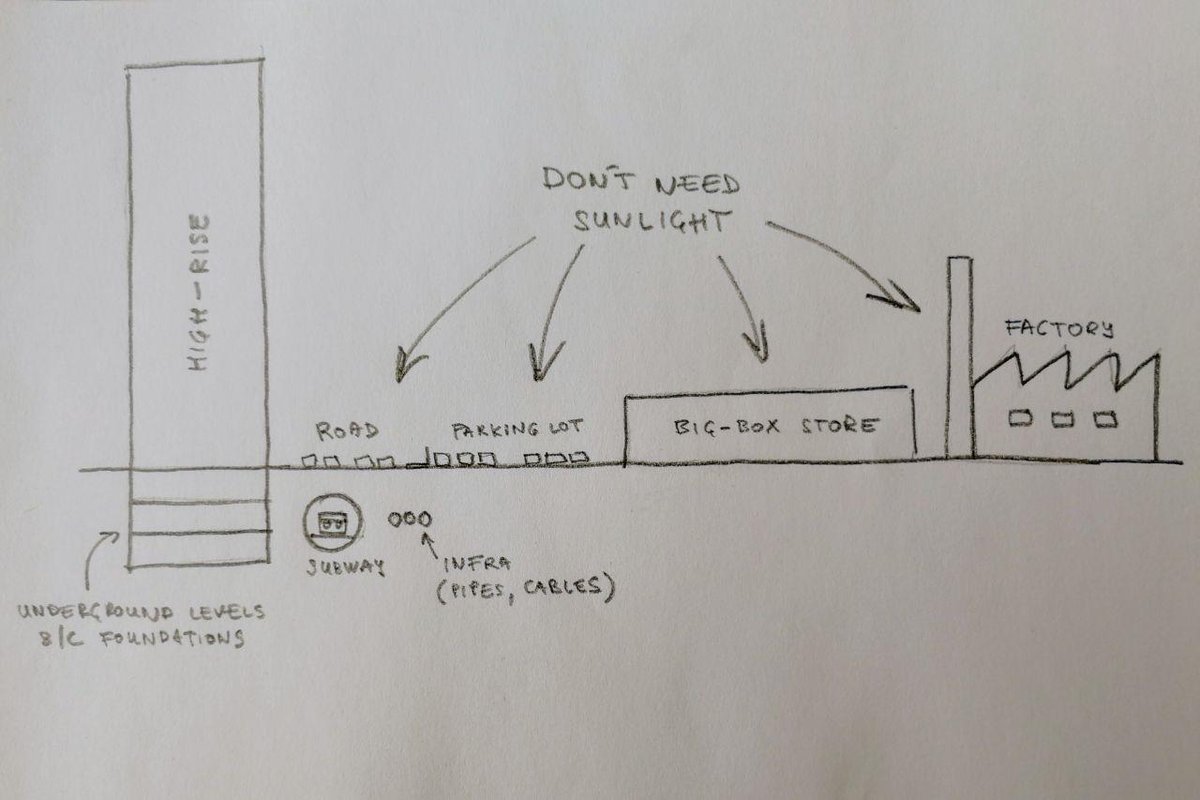 DON'T NEED
SUNLIGHT
HIGH-RISE
FACTORY
ROAD
PARKING LOT
BIG-BOX STORE
SUBWAY
INFRA
(PIPES, CABLES)
UNDERGROUND LEVELS
B/C FOUNDATIONS